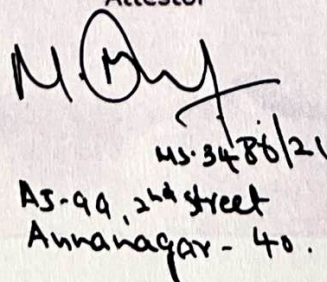 Attestor
MS. 3486/21
AJ-99, 2nd street
Annanagar - 40.